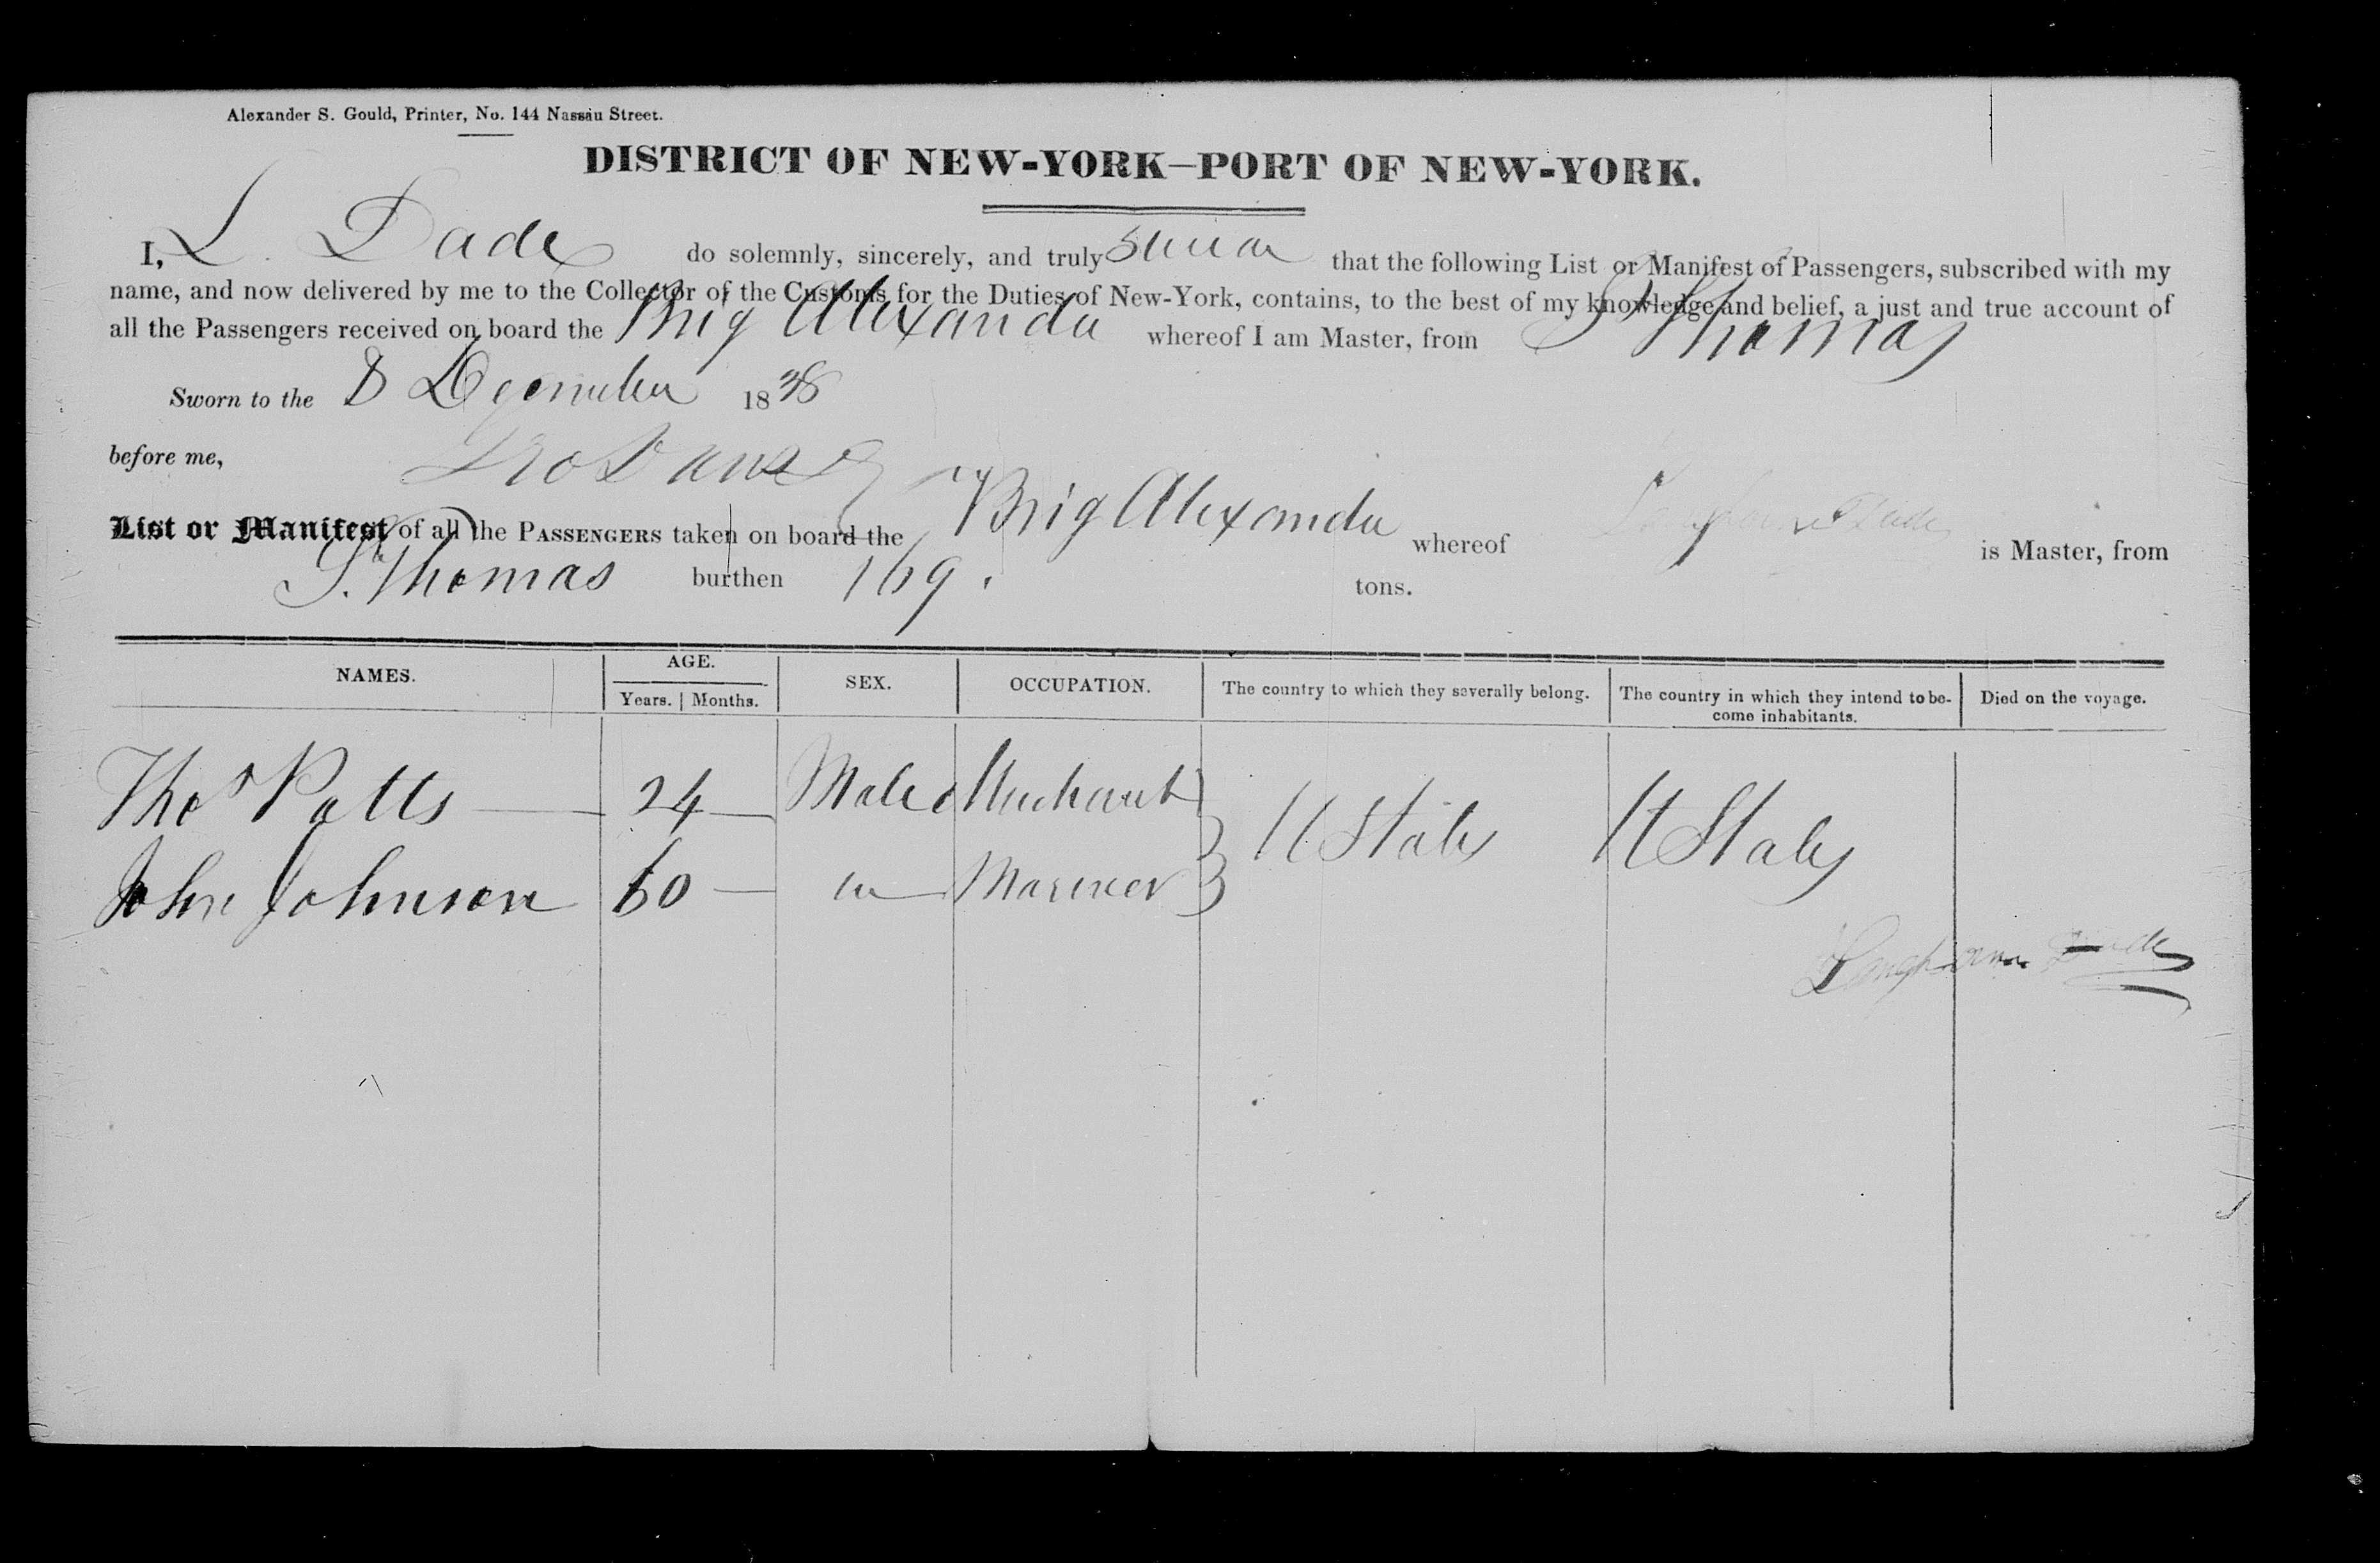 Alexander S. Gould, Printer, No. 144 Nassau Street.
DISTRICT OF NEW-YORK—PORT OF NEW-YORK.
I, L. Dade do solemnly, sincerely, and truly swear that the following List or Manifest of Passengers, subscribed with my
name, and now delivered by me to the Collector of the Customs for the Duties of New-York, contains, to the best of my knowledge and belief, a just and true account of
all the Passengers received on board the Brig Alexander whereof I am Master, from St Thomas
Sworn to the 8 December 1838
before me,
List or Manifest of all the PASSENGERS taken on board the Brig Alexander whereof Dade is Master, from
St. Thomas burthen 169. tons.
NAMES. AGE. SEX. OCCUPATION. The country to which they severally belong. The country in which they intend to be- Died on the voyage.
Years. | Months. come inhabitants.
Thos Potts — 24 — Male Merchant
U States U States
John Johnson 60 — Mariner
Dade